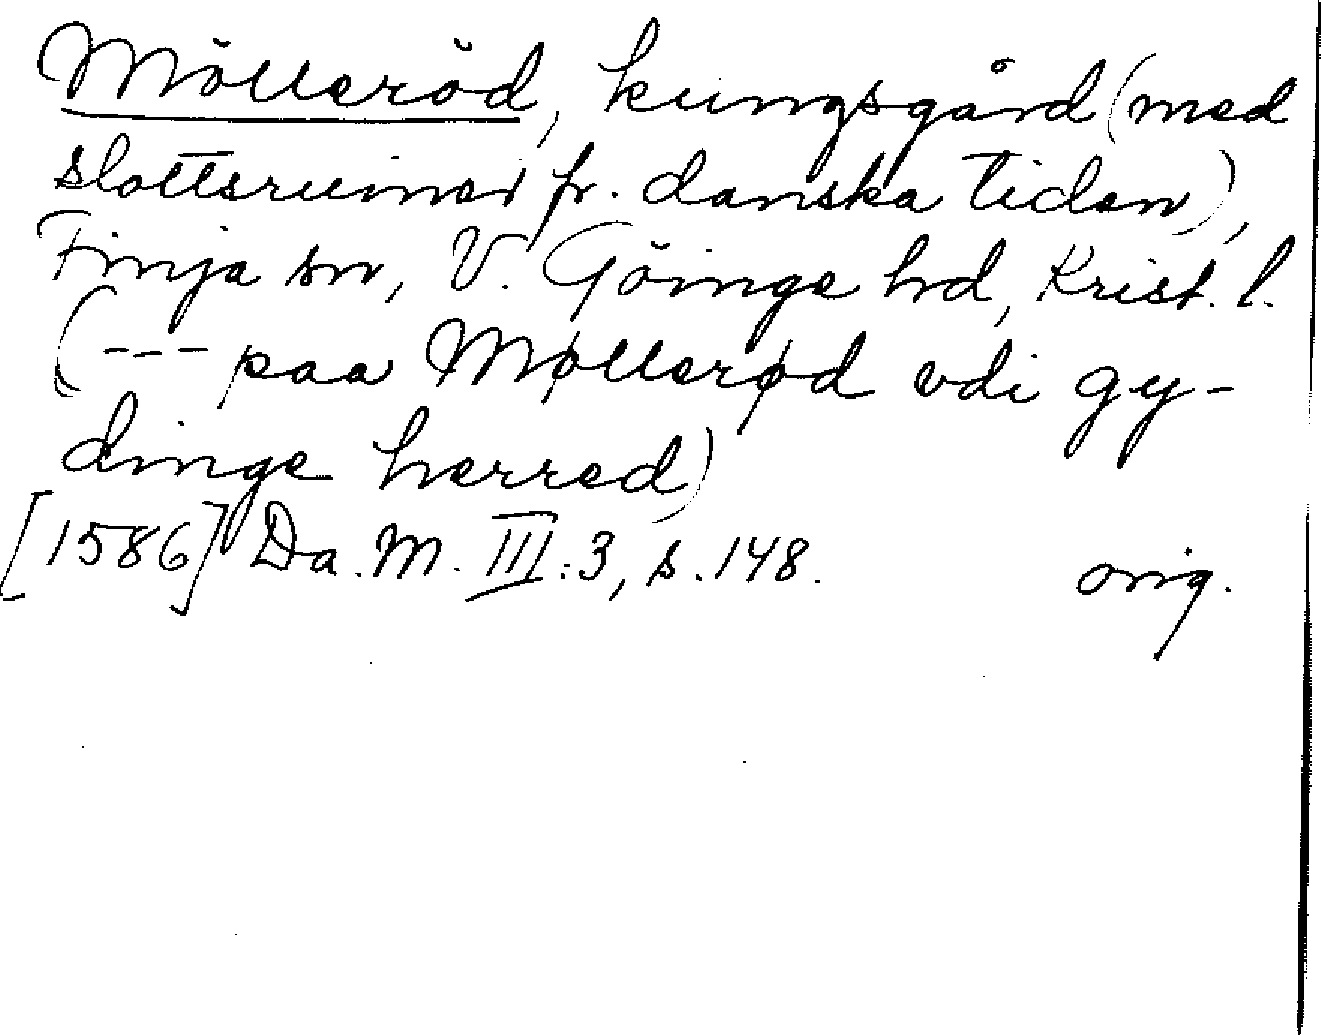 Mölleröd, kungsgård (med
slottsruiner fr. danska tiden),
Finja sn, V. Göinge hd, Krist. l.
(--- paa Møllerød vdi gy-
dinge herred)
[1586] Da. M. III:3, s. 148. orig.